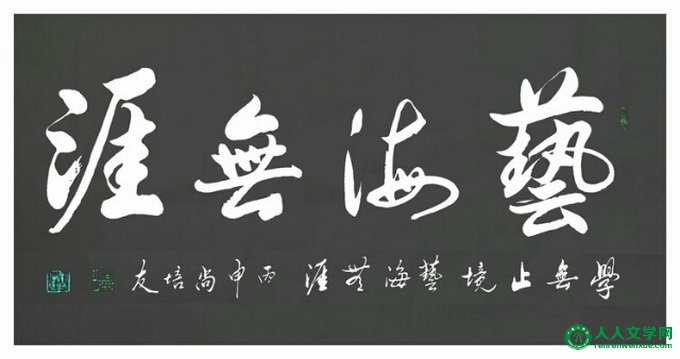 藝海無涯
學無止境藝海無涯 丙申尚培友
人人文学网
renrenwenxue.com